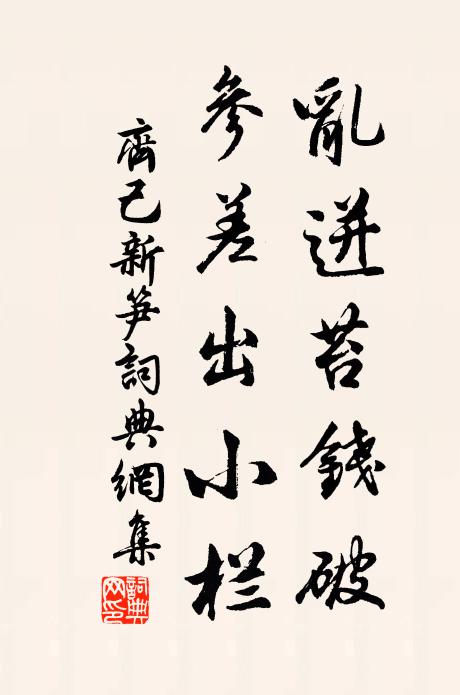 亂迸苔錢破
參差出小栏
齊己新笋詞典網集
詞典網印